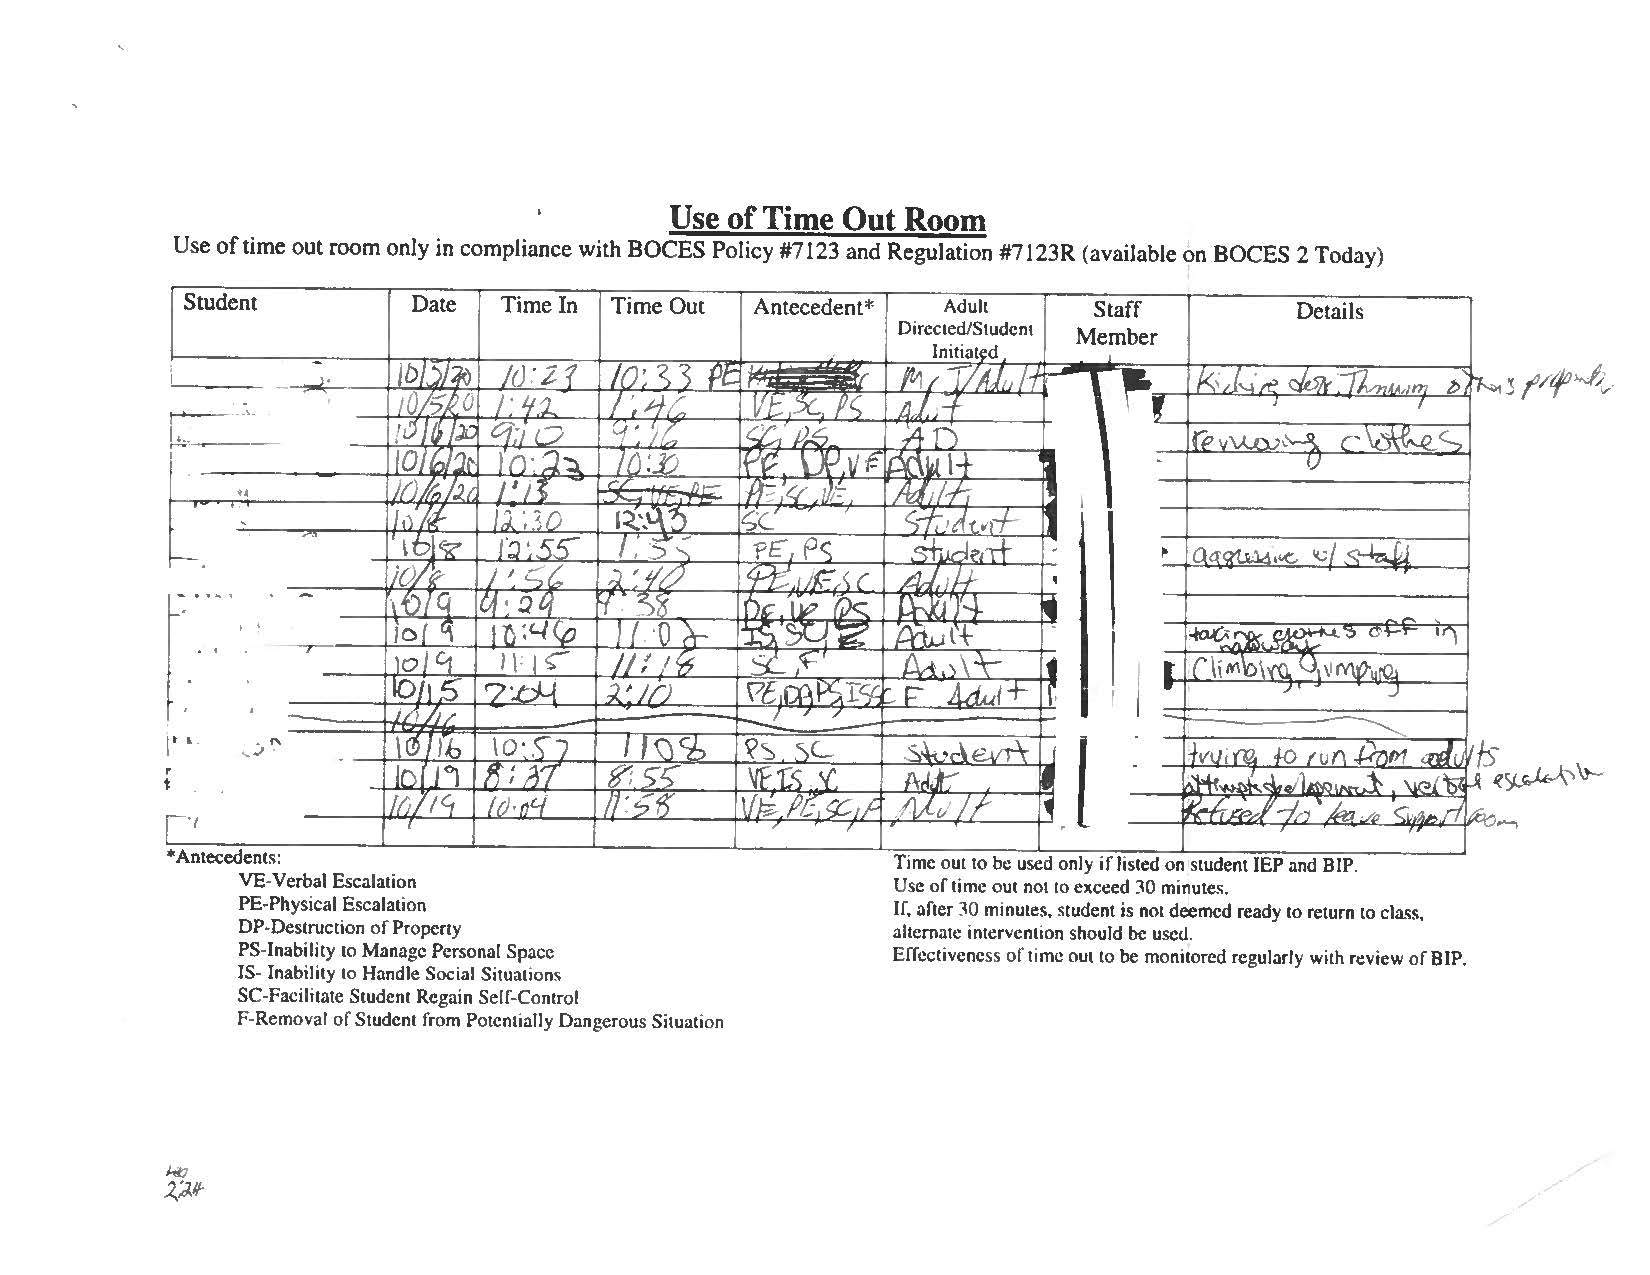 Use of Time Out Room
Use of time out room only in compliance with BOCES Policy #7123 and Regulation #7123R (available on BOCES 2 Today)
Student Date Time In Time Out Antecedent* Adult Directed/Student Initiated Staff Member Details
10/5/20 10:23 10:33 PE /Adult Kicking desk, Throwing others property
10/5/20 1:42 1:46 VE, SC, PS Adult
10/6/20 9:10 9:16 SC, PS AD removing clothes
10/6/20 10:23 10:30 PE, DP, VF Adult
10/6/20 1:13 SC, VE, PE PE, SC, VE, Adult
10/8 12:30 12:43 SC Student
10/8 12:55 1:55 PE, PS Student aggressive w/ staff
10/8 1:56 2:40 PE, VE, SC Adult
10/9 9:29 9:38 PE, VE, PS Adult
10/9 10:46 11:02 IS, SC, Adult taking clothes off in hallway
10/9 11:15 11:18 SC, F Adult Climbing, Jumping
10/15 2:04 2:10 PE, DP, PS, IS SC F Adult
10/16
10/16 10:57 1108 PS, SC Student trying to run from adults
10/19 8:37 8:55 VE, IS, SC Adlt attempted elopement, verbal escalation
10/19 10:04 11:58 VE, PE, SC, F Adult Refused to leave Support room
*Antecedents:
VE-Verbal Escalation
PE-Physical Escalation
DP-Destruction of Property
PS-Inability to Manage Personal Space
IS- Inability to Handle Social Situations
SC-Facilitate Student Regain Self-Control
F-Removal of Student from Potentially Dangerous Situation
Time out to be used only if listed on student IEP and BIP.
Use of time out not to exceed 30 minutes.
If, after 30 minutes, student is not deemed ready to return to class,
alternate intervention should be used.
Effectiveness of time out to be monitored regularly with review of BIP.